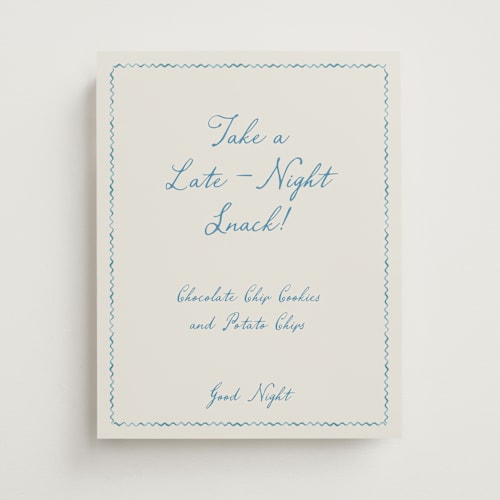 Take a
Late - Night
Snack!
Chocolate Chip Cookies
and Potato Chips
Good Night